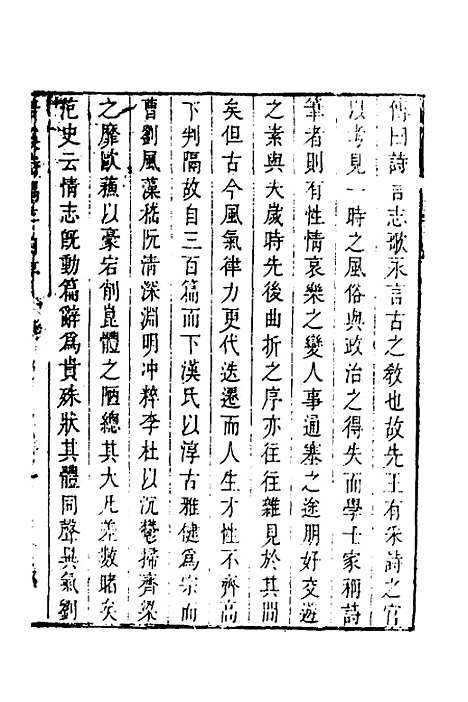 傳曰詩言志歌永言古之教也故先王有采詩之官
以考見一時之風俗與政治之得失而學士家稱詩
筆者則有性情哀樂之變人事通塞之途朋好交遊
之素與夫歲時先後曲折之序亦往往雜見於其間
矣但古今風氣律力更代迭遷而人生才性不齊高
下判隔故自三百篇而下漢氏以淳古雅健爲宗而
曹劉風藻嵇阮清深淵明冲粹李杜以沉鬱掃齊梁
之靡歐蘇以豪宕削崑體之陋總其大凡差數睹矣
范史云情志既動篇辭爲貴殊狀其體同聲異氣劉